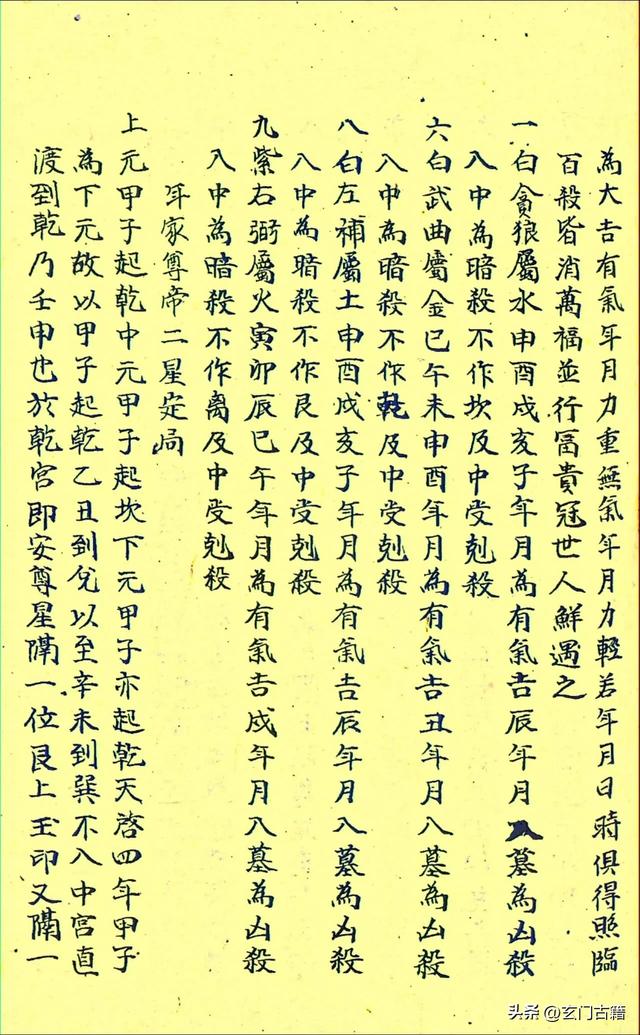 為大吉有氣年月力重無氣年月力輕若年月日時俱得照臨
百殺皆消萬福並行冨貴冠世人鮮遇之
一白貪狼屬水申酉戌亥子年月為有氣吉辰年月入墓為凶殺
入中為暗殺不作坎及中受剋殺
六白武曲屬金巳午未申酉年月為有氣吉丑年月入墓為凶殺
入中為暗殺不作乾及中受剋殺
八白左補屬土申酉戌亥子年月為有氣吉辰年月入墓為凶殺
入中為暗殺不作艮及中受剋殺
九紫右弼屬火寅卯辰巳午年月為有氣吉戌年月入墓為凶殺
入中為暗殺不作离及中受剋殺
年家尊帝二星定局
上元甲子起乾中元甲子起坎下元甲子亦起乾天啓四年甲子
為下元故以甲子起乾乙丑到兌以至辛未到巽不入中宮直
渡到乾乃壬申也於乾宮即安尊星隔一位艮上玉印又隔一
头条 @玄门古籍